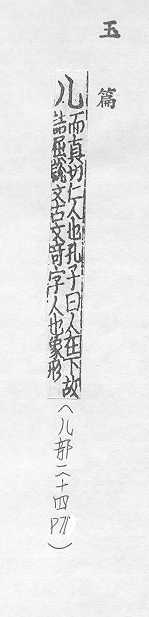 玉篇
儿
而真切仁人也孔子曰人在下故
詰屈說文古文奇字人也象形
(儿部二十四P71)